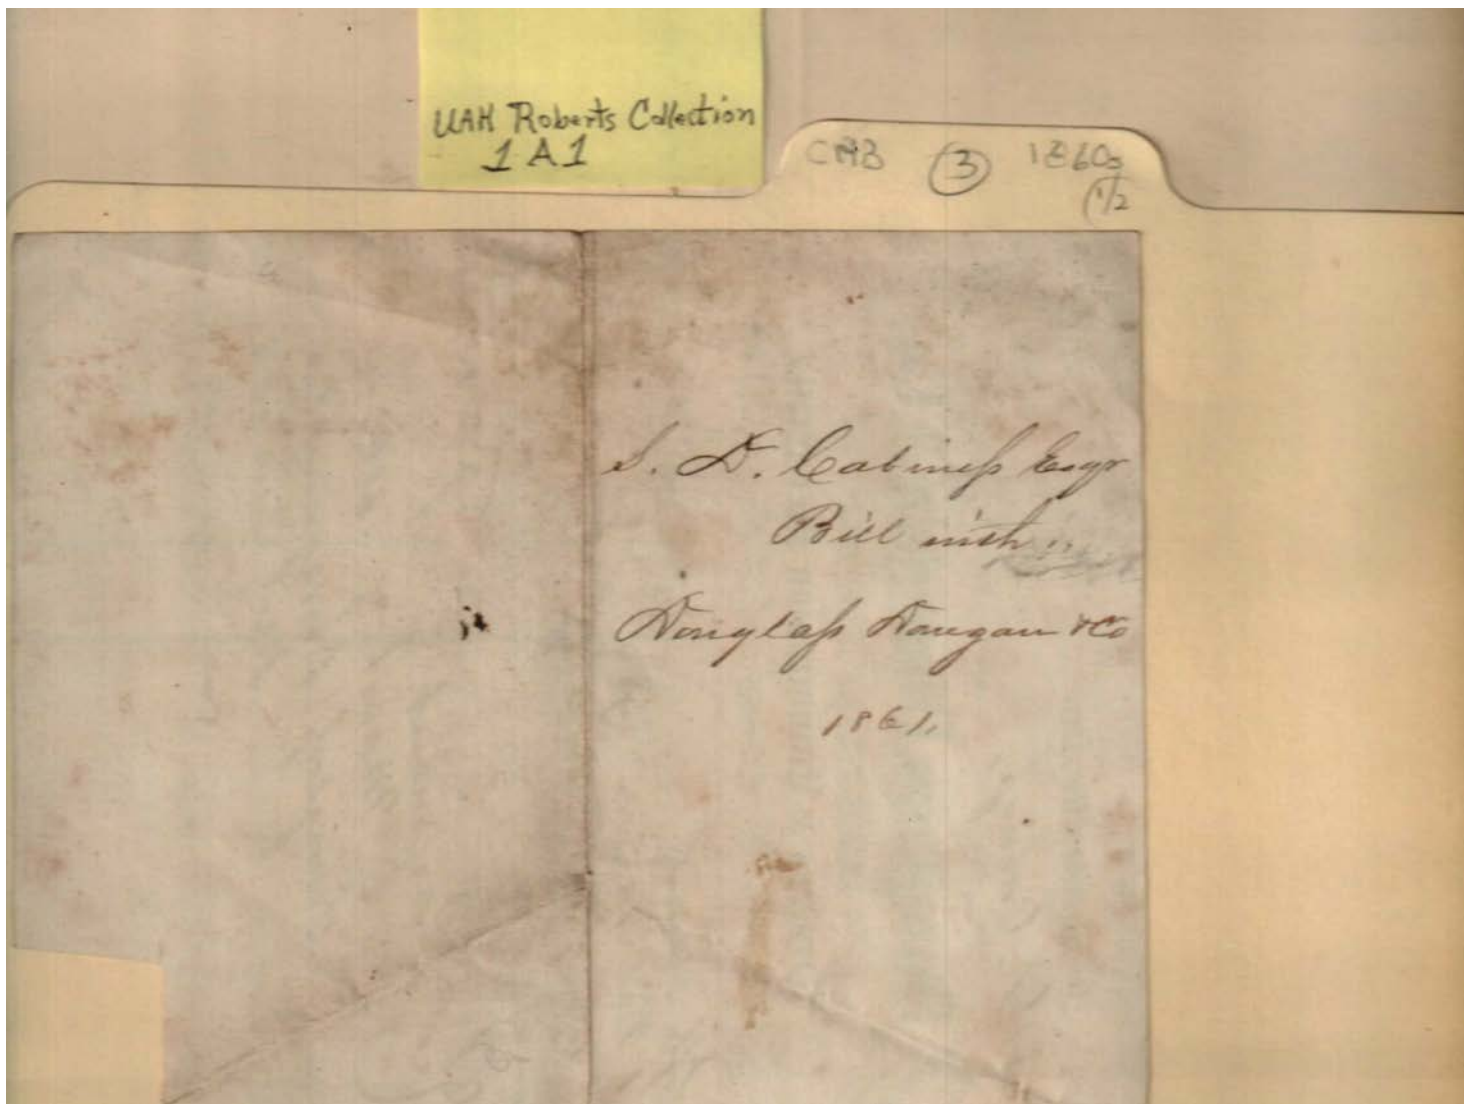 UAH Roberts Collection
1A1
CMB ③ 1860s
1/2
S. D. Cabiness Esqr
Bill with
Douglass Dougan & Co
1861